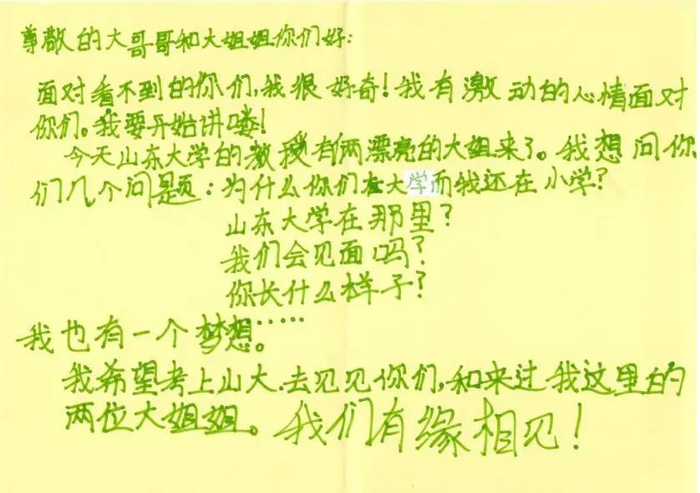 尊敬的大哥哥和大姐姐你们好:
面对看不到的你们,我很好奇!我有激动的心情面对
你们。我要开始讲喽!
今天山东大学的教授有俩漂亮的大姐来了。我想问你
们几个问题:为什么你们在大学而我还在小学?
山东大学在那里?
我们会见面吗?
你长什么样子?
……
我也有一个梦想。
我希望考上山大,去见见你们,和来过我这里的
两位大姐姐。我们有缘相见!